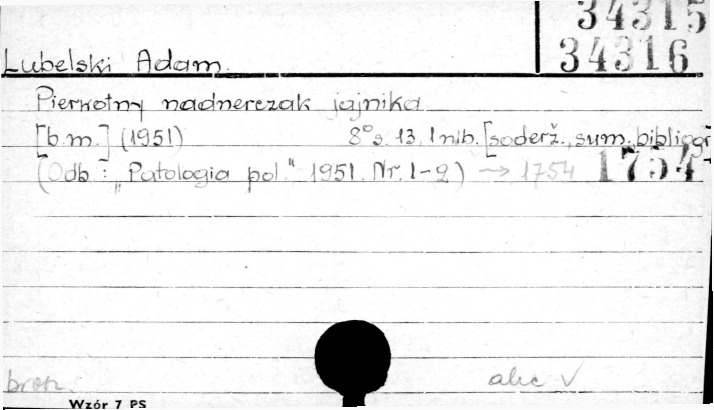 34315
34316
Lubelski Adam.
Pierwotny nadnerczak jajnika
[b.m.] (1951) 8° s. 13, 1 nlb. [soderž., sum., bibliogr
(Odb : „Patologia pol." 1951. Nr. 1-2) → 1754 1754
brosz.
akc V
Wzór 7 PS